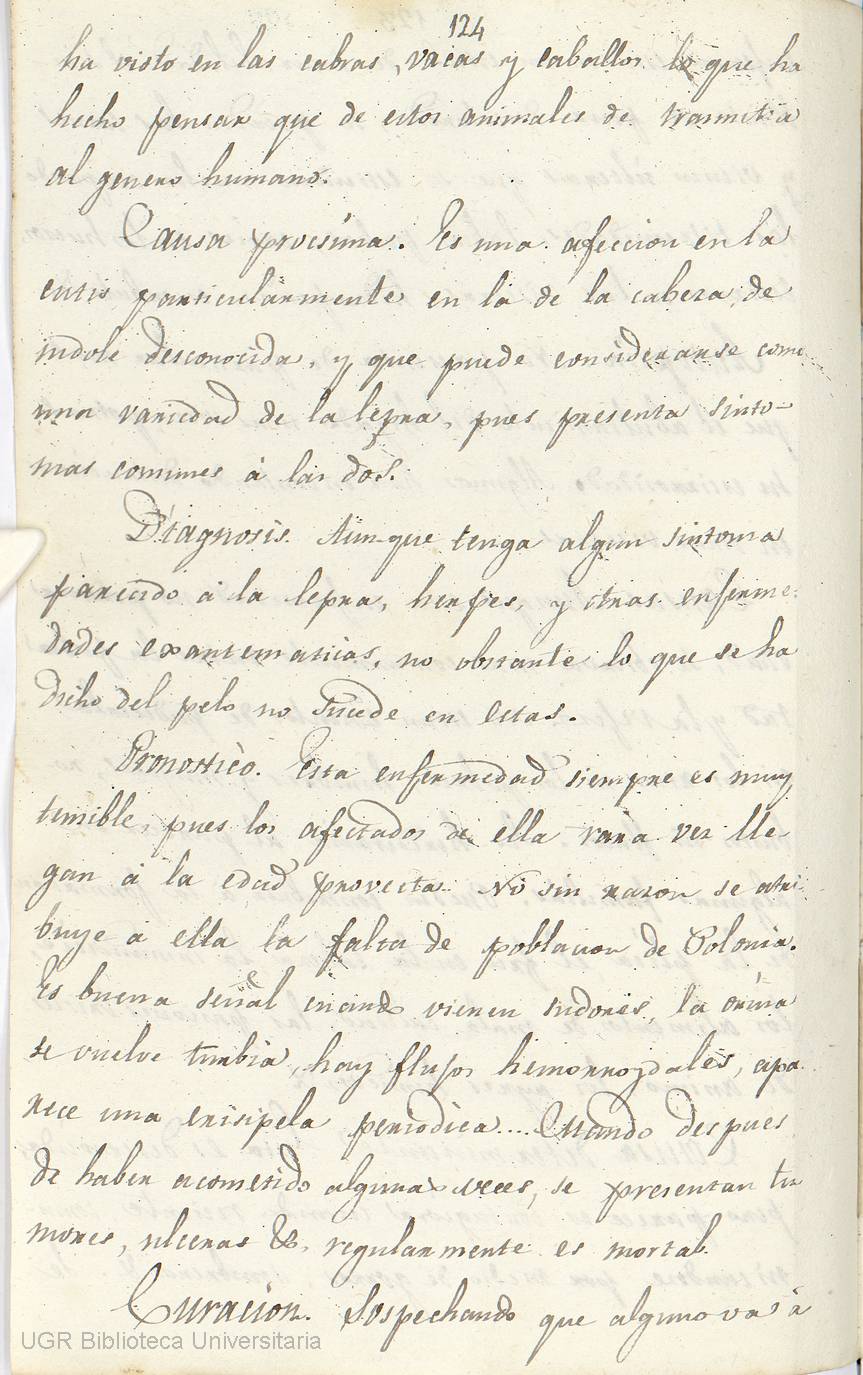 124
ha visto en las cabras, vacas y caballos lo que ha
hecho pensar que de estos animales de trasmitia
al genero humano.
Causa procsima. Es una afeccion en la
cutis particularmente en la de la cabeza, de
indole desconocida, y que puede considerarse como
una variedad de la lepra, pues presenta sinto-
mas comunes á las dos.
Diagnosis. Aunque tenga algun sintoma
parecido á la lepra, herpes, y otras enferme-
dades exantematicas, no obstante lo que se ha
dicho del pelo no sucede en estas.
Pronostico. Esta enfermedad siempre es muy
temible, pues los afectados de ella rara vez lle
gan á la edad provecta. No sin razon se atri-
buye á ella la falta de poblacion de Polonia.
Es buena señal cuando vienen sudores, la orina
se vuelve turbia, hay flujos hemorroydales, apa
rece una erisipela periodica.... Cuando despues
de haber acometido algunas veces, se presentan tu
mores, ulceras &, regularmente es mortal.
Curacion. Sospechando que alguno vas á
UGR Biblioteca Universitaria